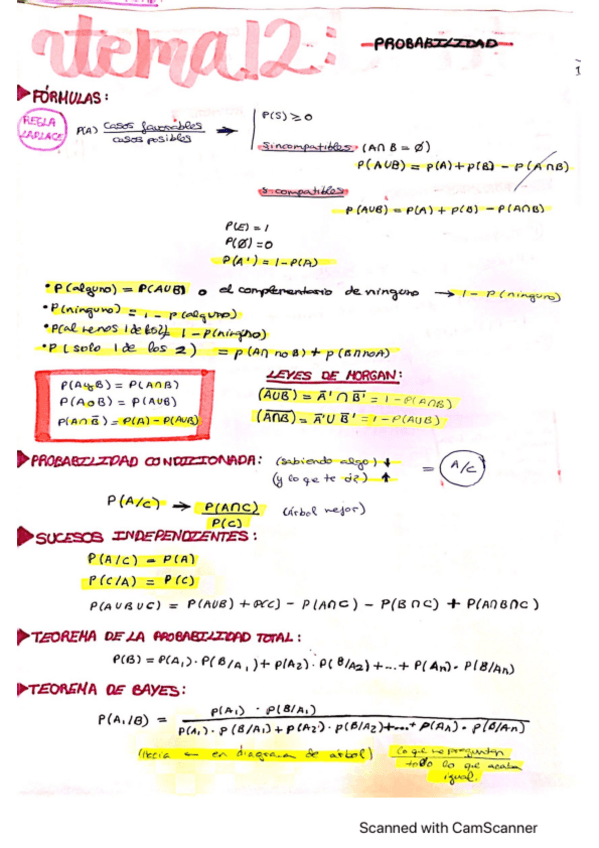 tema 12: PROBABILIDAD
FÓRMULAS:
REGLA LAPLACE
P(A) Casos favorables / casos posibles →
P(S) ≥ 0
s incompatibles (A∩B = Ø)
P(A∪B) = P(A) + P(B) - P(A∩B)
s compatibles
P(A∪B) = P(A) + P(B) - P(A∩B)
P(E) = 1
P(Ø) = 0
P(A') = 1 - P(A)
• P(alguno) = P(A∪B) o el complementario de ninguno → 1 - P(ninguno)
• P(ninguno) = 1 - P(alguno)
• P(al menos 1 de los 2) = 1 - P(ninguno)
• P(solo 1 de los 2) = P(A∩ no B) + P(B∩ no A)
P(A y B) = P(A∩B)
P(A o B) = P(A∪B)
P(A∩B̅) = P(A) - P(A∪B)
LEYES DE MORGAN:
(A∪B)̅ = A̅' ∩ B̅' = 1 - P(A∩B)
(A∩B)̅ = A̅' ∪ B̅' = 1 - P(A∪B)
PROBABILIDAD CONDICIONADA: (sabiendo algo) ↓
(y lo que te dé) ↑ = A/C
P(A/C) → P(A∩C) / P(C) (árbol mejor)
SUCESOS INDEPENDIENTES:
P(A/C) = P(A)
P(C/A) = P(C)
P(A∪B∪C) = P(A∪B) + P(C) - P(A∩C) - P(B∩C) + P(A∩B∩C)
TEOREMA DE LA PROBABILIDAD TOTAL:
P(B) = P(A₁) · P(B/A₁) + P(A₂) · P(B/A₂) + ... + P(An) · P(B/An)
TEOREMA DE BAYES:
P(A₁/B) = P(A₁) · P(B/A₁) / P(A₁) · P(B/A₁) + P(A₂) · P(B/A₂) + ... + P(An) · P(B/An)
(Hacia ← en diagrama de árbol) lo que me preguntan
todo lo que acaba
igual.
Scanned with CamScanner